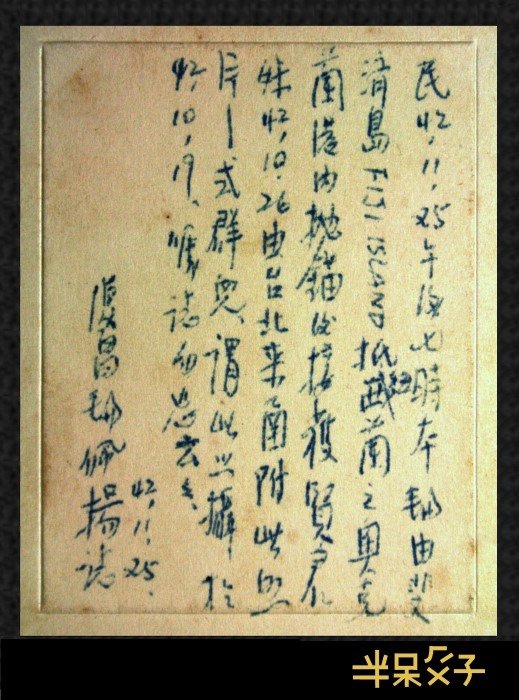 民42,11,25午後七時本輪由斐
済島FIJI ISLAND抵紐西蘭之奧克
蘭港內拋錨後接獲賢
妹42,10,26由台北来函附此照
片一式群兒、謂此照攝於
42,10,19、誌勿忘云々、
復昌輪佩揚誌
42,11,25.
半呆父子